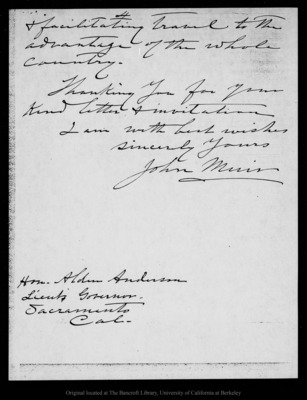 & facilitating travel to the
advantage of the whole
country.
Thanking You for your
kind letter & invitation
I am with best wishes
sincerely Yours
John Muir
Hon. Alden Anderson
Lieut Governor.
Sacramento
Cal.
Original located at The Bancroft Library, University of California at Berkeley